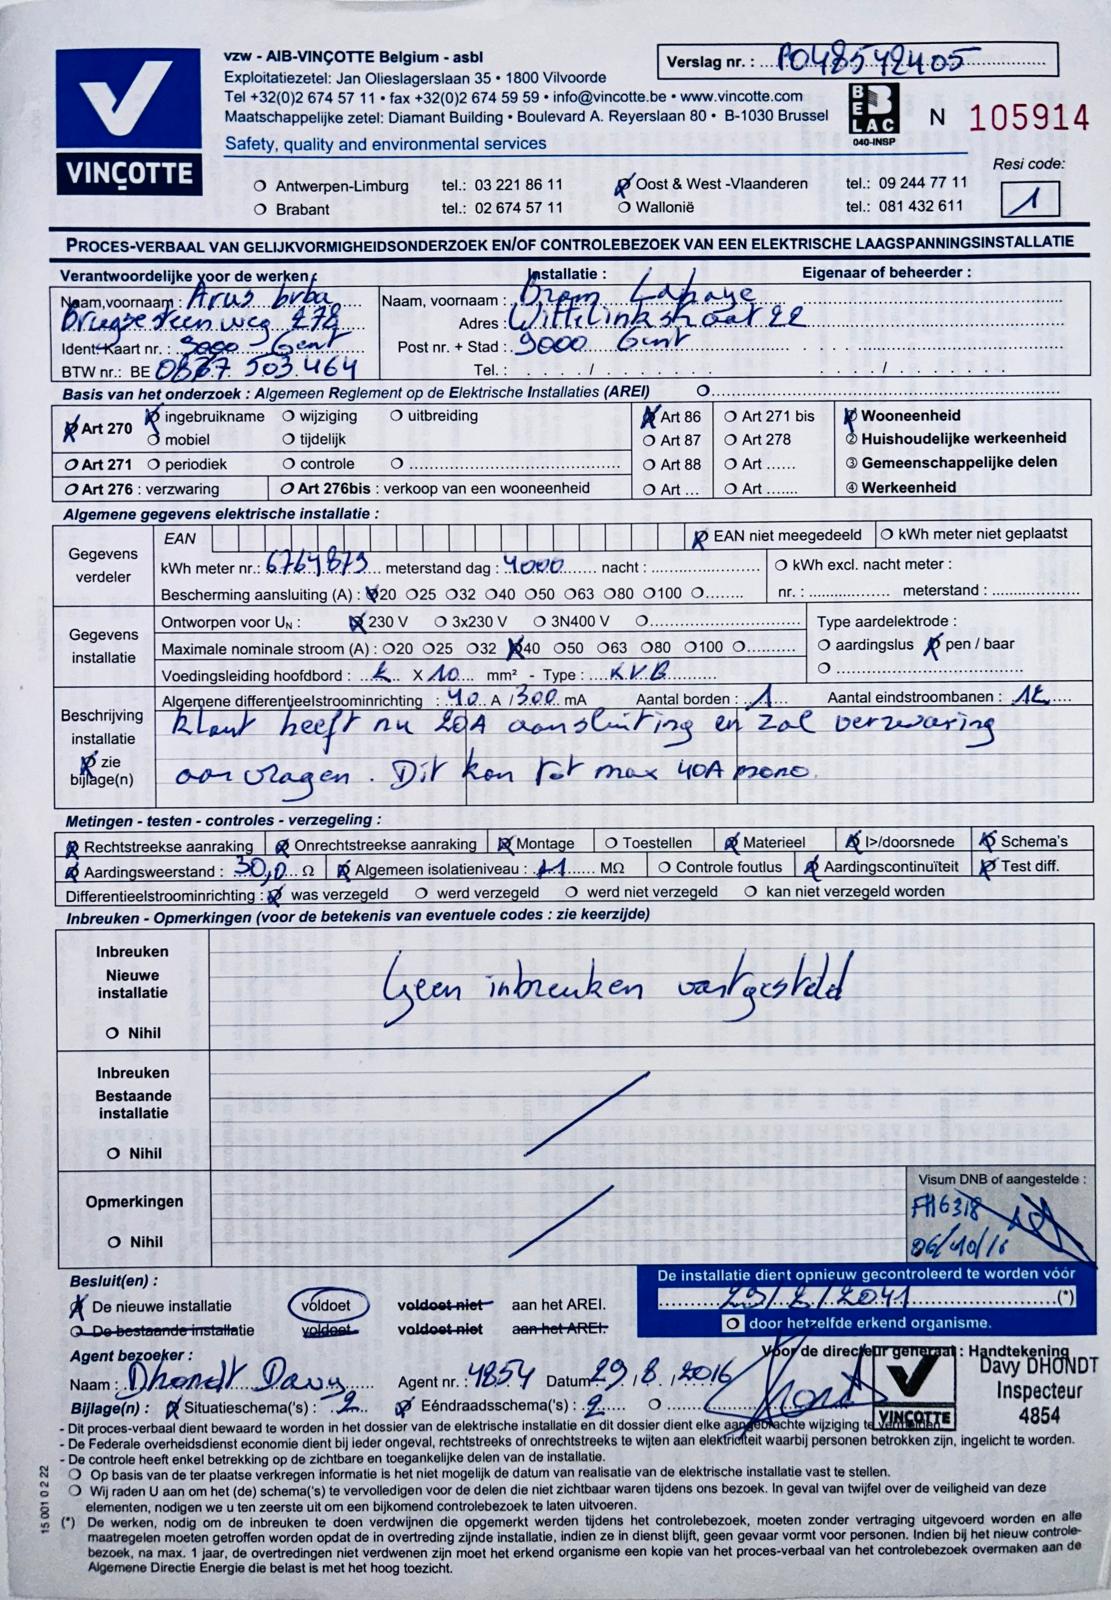 vzw - AIB-VINÇOTTE Belgium - asbl
Exploitatiezetel: Jan Olieslagerslaan 35 • 1800 Vilvoorde
Tel +32(0)2 674 57 11 • fax +32(0)2 674 59 59 • info@vincotte.be • www.vincotte.com
Maatschappelijke zetel: Diamant Building • Boulevard A. Reyerslaan 80 • B-1030 Brussel
Safety, quality and environmental services
VINÇOTTE
Verslag nr. : P048542405
BELAC
040-INSP
N 105914
Resi code:
1
Antwerpen-Limburg tel.: 03 221 86 11 Oost & West -Vlaanderen tel.: 09 244 77 11
Brabant tel.: 02 674 57 11 Wallonië tel.: 081 432 611
PROCES-VERBAAL VAN GELIJKVORMIGHEIDSONDERZOEK EN/OF CONTROLEBEZOEK VAN EEN ELEKTRISCHE LAAGSPANNINGSINSTALLATIE
Verantwoordelijke voor de werken : Installatie : Eigenaar of beheerder :
Naam,voornaam : Arus bvba Naam, voornaam : Bram Lahaye
Brugse steenweg 278 Adres : Wittelinkstraat 22
Ident. Kaart nr. : 9000 Gent Post nr. + Stad : 9000 Gent
BTW nr.: BE 0837 503 464 Tel. : / /
Basis van het onderzoek : Algemeen Reglement op de Elektrische Installaties (AREI)
Art 270 ingebruikname wijziging uitbreiding Art 86 Art 271 bis Wooneenheid
mobiel tijdelijk Art 87 Art 278 ② Huishoudelijke werkeenheid
Art 271 periodiek controle Art 88 Art ...... ③ Gemeenschappelijke delen
Art 276 : verzwaring Art 276bis : verkoop van een wooneenheid Art ... Art ....... ④ Werkeenheid
Algemene gegevens elektrische installatie :
Gegevens verdeler
EAN EAN niet meegedeeld kWh meter niet geplaatst
kWh meter nr.: 6764873 meterstand dag : 4000 nacht : kWh excl. nacht meter :
Bescherming aansluiting (A) : 20 25 32 40 50 63 80 100 nr. : meterstand :
Gegevens installatie
Ontworpen voor UN : 230 V 3x230 V 3N400 V Type aardelektrode :
Maximale nominale stroom (A) : 20 25 32 40 50 63 80 100 aardingslus pen / baar
Voedingsleiding hoofdbord : X 10 mm² - Type : K.V.B
Beschrijving installatie
zie bijlage(n)
Algemene differentieelstroominrichting : 40 A / 300 mA Aantal borden : 1 Aantal eindstroombanen : 12
klant heeft nu 20A aansluiting en zal verzwaring
aanvragen. Dit kan tot max 40A mono.
Metingen - testen - controles - verzegeling :
Rechtstreekse aanraking Onrechtstreekse aanraking Montage Toestellen Materieel I>/doorsnede Schema's
Aardingsweerstand : 30,0 Ω Algemeen isolatieniveau : 11 MΩ Controle foutlus Aardingscontinuïteit Test diff.
Differentieelstroominrichting : was verzegeld werd verzegeld werd niet verzegeld kan niet verzegeld worden
Inbreuken - Opmerkingen (voor de betekenis van eventuele codes : zie keerzijde)
Inbreuken
Nieuwe
installatie
Nihil
Geen inbreuken vastgesteld
Inbreuken
Bestaande
installatie
Nihil
Opmerkingen
Nihil
Visum DNB of aangestelde :
FH6318
06/10/16
Besluit(en) :
De nieuwe installatie voldoet voldoet niet aan het AREI.
De bestaande installatie voldoet voldoet niet aan het AREI.
De installatie dient opnieuw gecontroleerd te worden vóór
29/8/2041 (*)
door hetzelfde erkend organisme.
Agent bezoeker : Voor de directeur generaal : Handtekening
Naam : Dhondt Davy Agent nr. : 4854 Datum 29 / 8 / 2016
Davy DHONDT
Inspecteur
4854
VINÇOTTE
Bijlage(n) : Situatieschema('s) : 2 Eéndraadsschema('s) : 2
- Dit proces-verbaal dient bewaard te worden in het dossier van de elektrische installatie en dit dossier dient elke aangebrachte wijziging te vermelden.
- De Federale overheidsdienst economie dient bij ieder ongeval, rechtstreeks of onrechtstreeks te wijten aan elektriciteit waarbij personen betrokken zijn, ingelicht te worden.
- De controle heeft enkel betrekking op de zichtbare en toegankelijke delen van de installatie.
Op basis van de ter plaatse verkregen informatie is het niet mogelijk de datum van realisatie van de elektrische installatie vast te stellen.
Wij raden U aan om het (de) schema('s) te vervolledigen voor de delen die niet zichtbaar waren tijdens ons bezoek. In geval van twijfel over de veiligheid van deze
elementen, nodigen we u ten zeerste uit om een bijkomend controlebezoek te laten uitvoeren.
(*) De werken, nodig om de inbreuken te doen verdwijnen die opgemerkt werden tijdens het controlebezoek, moeten zonder vertraging uitgevoerd worden en alle
maatregelen moeten getroffen worden opdat de in overtreding zijnde installatie, indien ze in dienst blijft, geen gevaar vormt voor personen. Indien bij het nieuw controle-
bezoek, na max. 1 jaar, de overtredingen niet verdwenen zijn moet het erkend organisme een kopie van het proces-verbaal van het controlebezoek overmaken aan de
Algemene Directie Energie die belast is met het hoog toezicht.
15 001 0 2 22